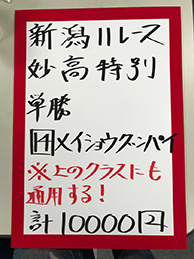 新潟11レース
妙高特別
単勝
14メイショウグンパイ
※上のクラスにも
通用する!
計10000円